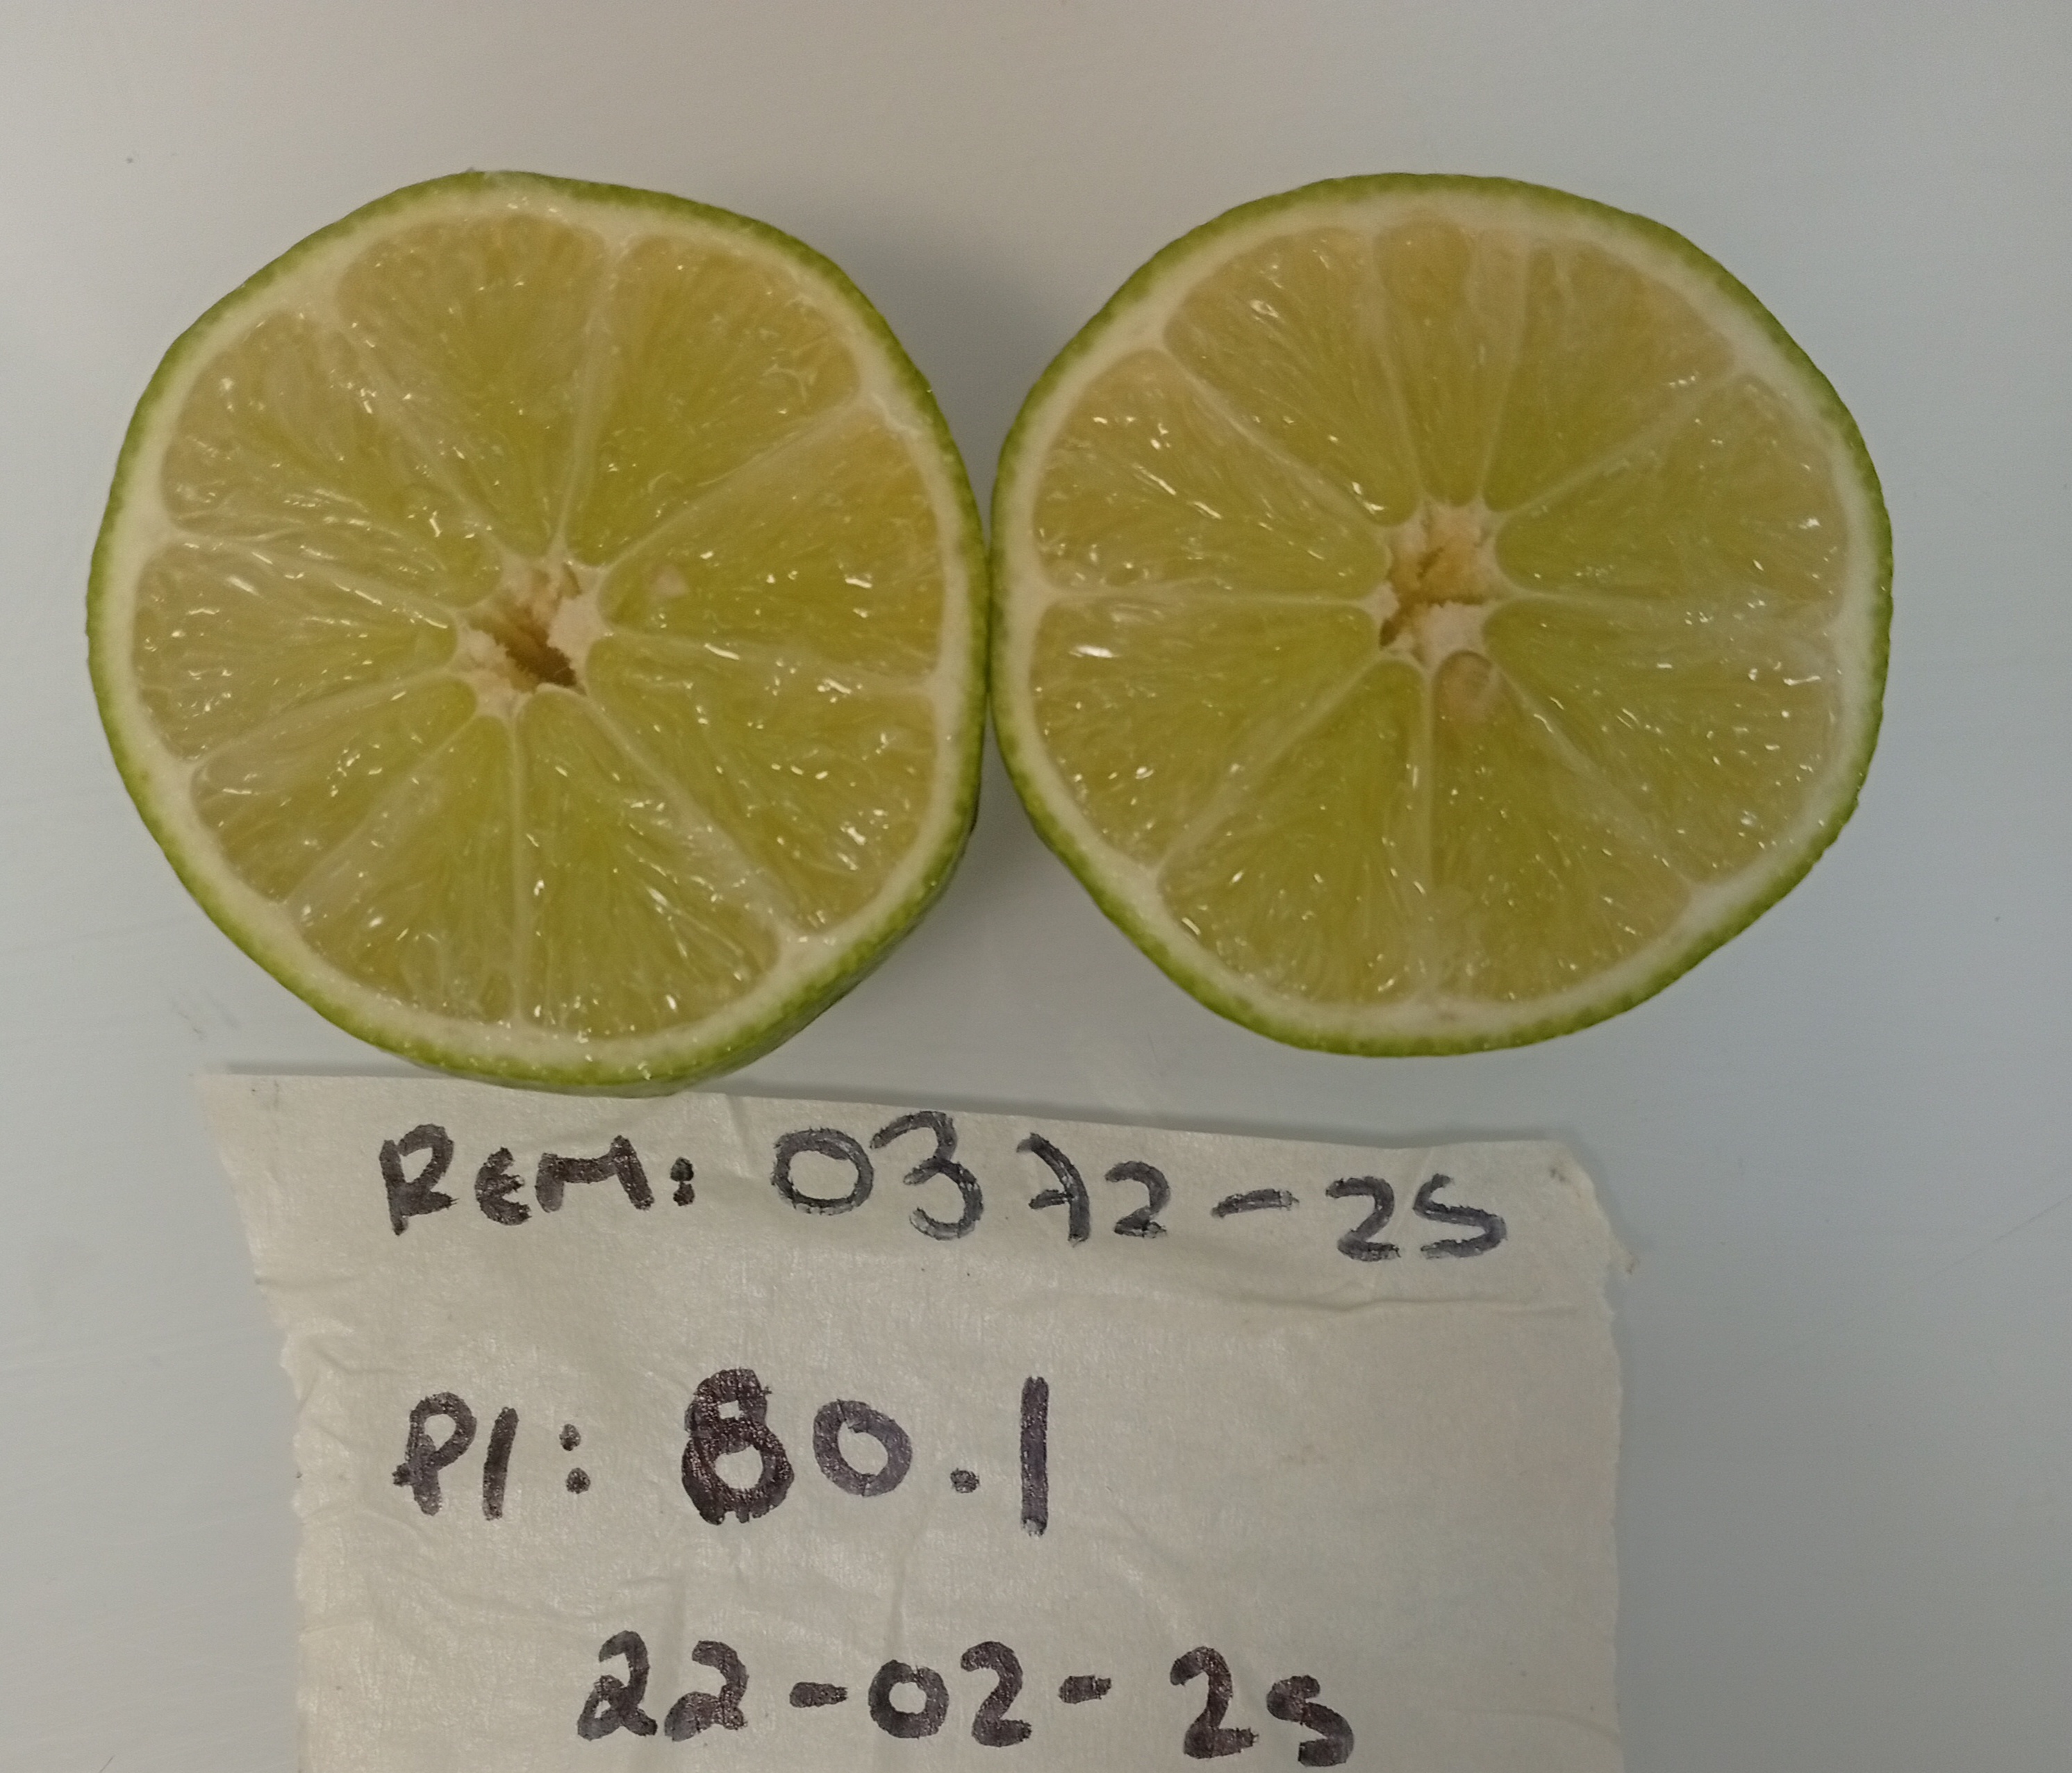 REM: 0372-25
PI: 80.1
22-02-25